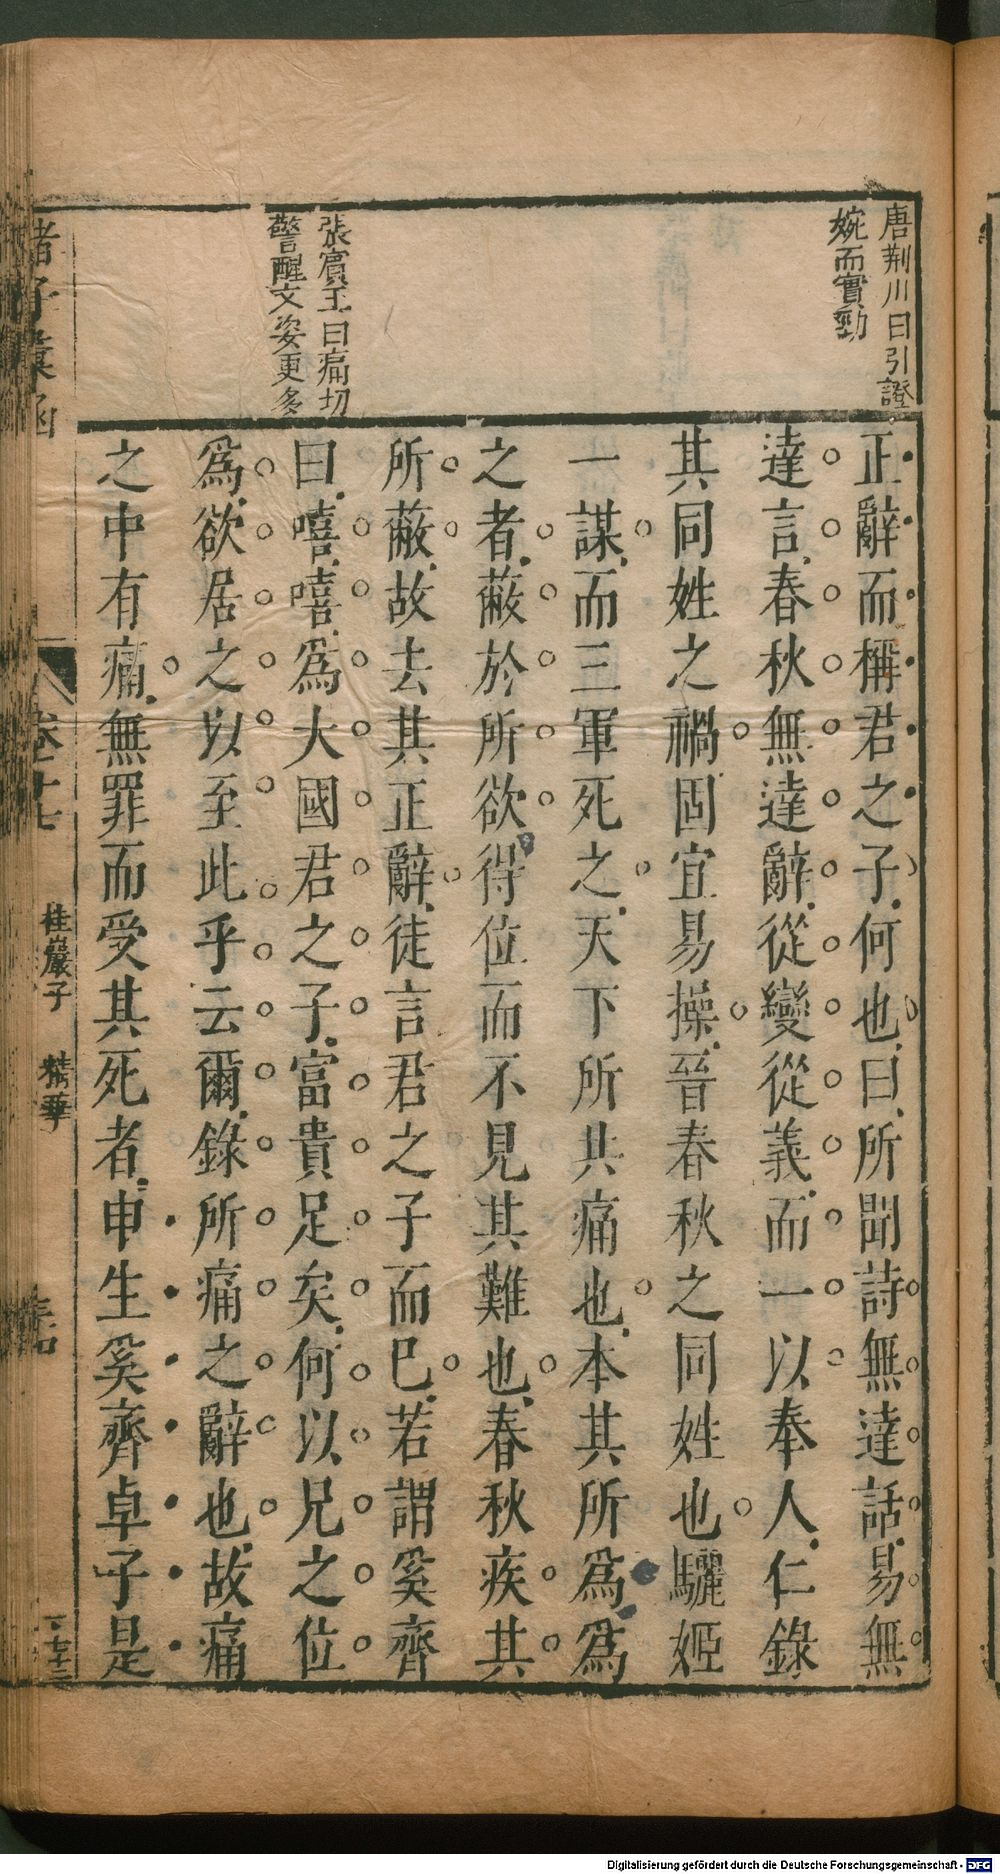 唐荊川曰引證
婉而實勁
張賓王曰痛切
警醒文姿更多
正辭而稱君之子何也曰所聞詩無達話易無
達言春秋無達辭從變從義而一以奉人仁錄
其同姓之禍固宜易操晉春秋之同姓也驪姬
一謀而三軍死之天下所共痛也本其所爲爲
之者蔽於所欲得位而不見其難也春秋疾其
所蔽故去其正辭徒言君之子而已若謂奚齊
曰嘻嘻爲大國君之子富貴足矣何以兄之位
爲欲居之以至此乎云爾錄所痛之辭也故痛
之中有痛無罪而受其死者申生奚齊卓子是
諸子彙函
卷十七
桂巖子 精華
Digitalisierung gefördert durch die Deutsche Forschungsgemeinschaft - DFG